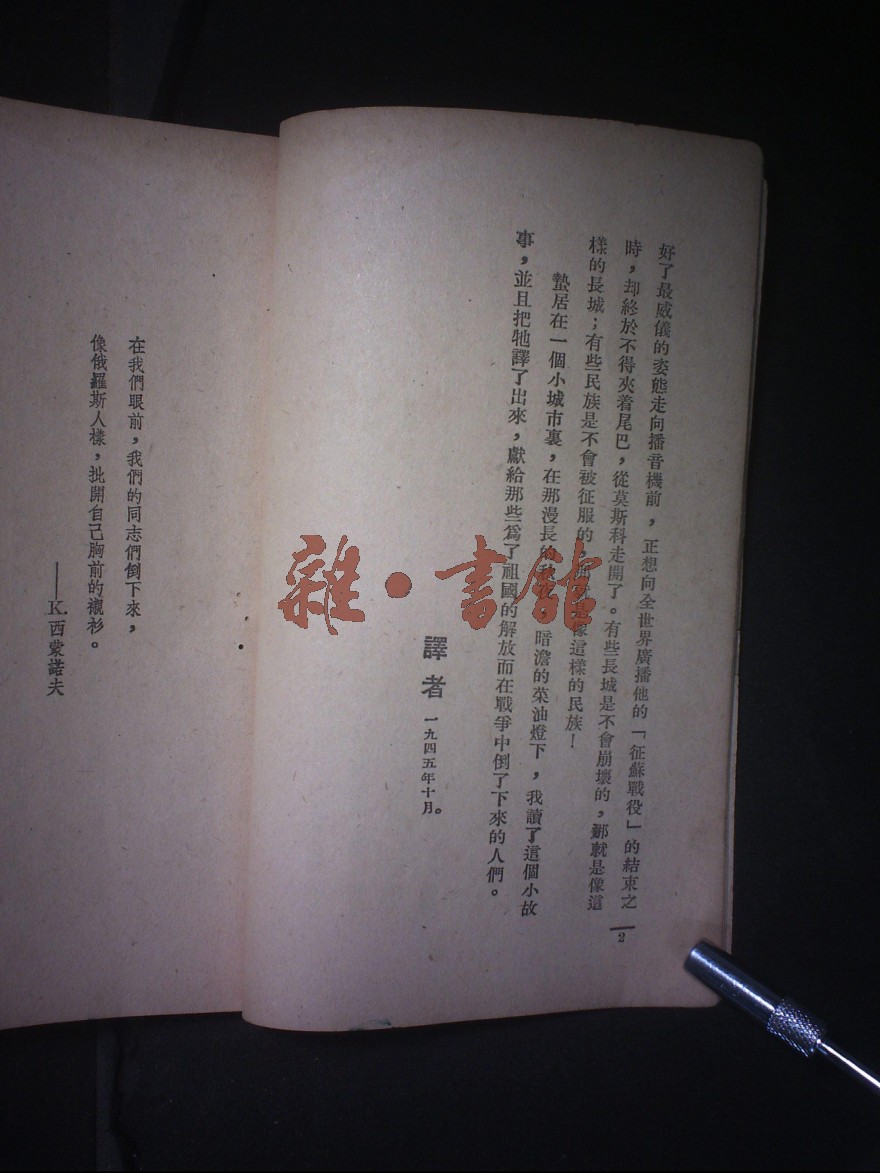 好了最威儀的姿態走向播音機前，正想向全世界廣播他的「征蘇戰役」的結束之
時，却終於不得夾着尾巴，從莫斯科走開了。有些長城是不會崩壞的，那就是像這
樣的長城；有些民族是不會被征服的，那就是像這樣的民族！
蟄居在一個小城市裏，在那漫長的秋夜，暗澹的菜油燈下，我讀了這個小故
事，並且把牠譯了出來，獻給那些爲了祖國的解放而在戰爭中倒了下來的人們。
譯者 一九四五年十月。
2
在我們眼前，我們的同志們倒下來，
像俄羅斯人樣，扯開自己胸前的襯衫。
——K. 西蒙諾夫
雜·書館